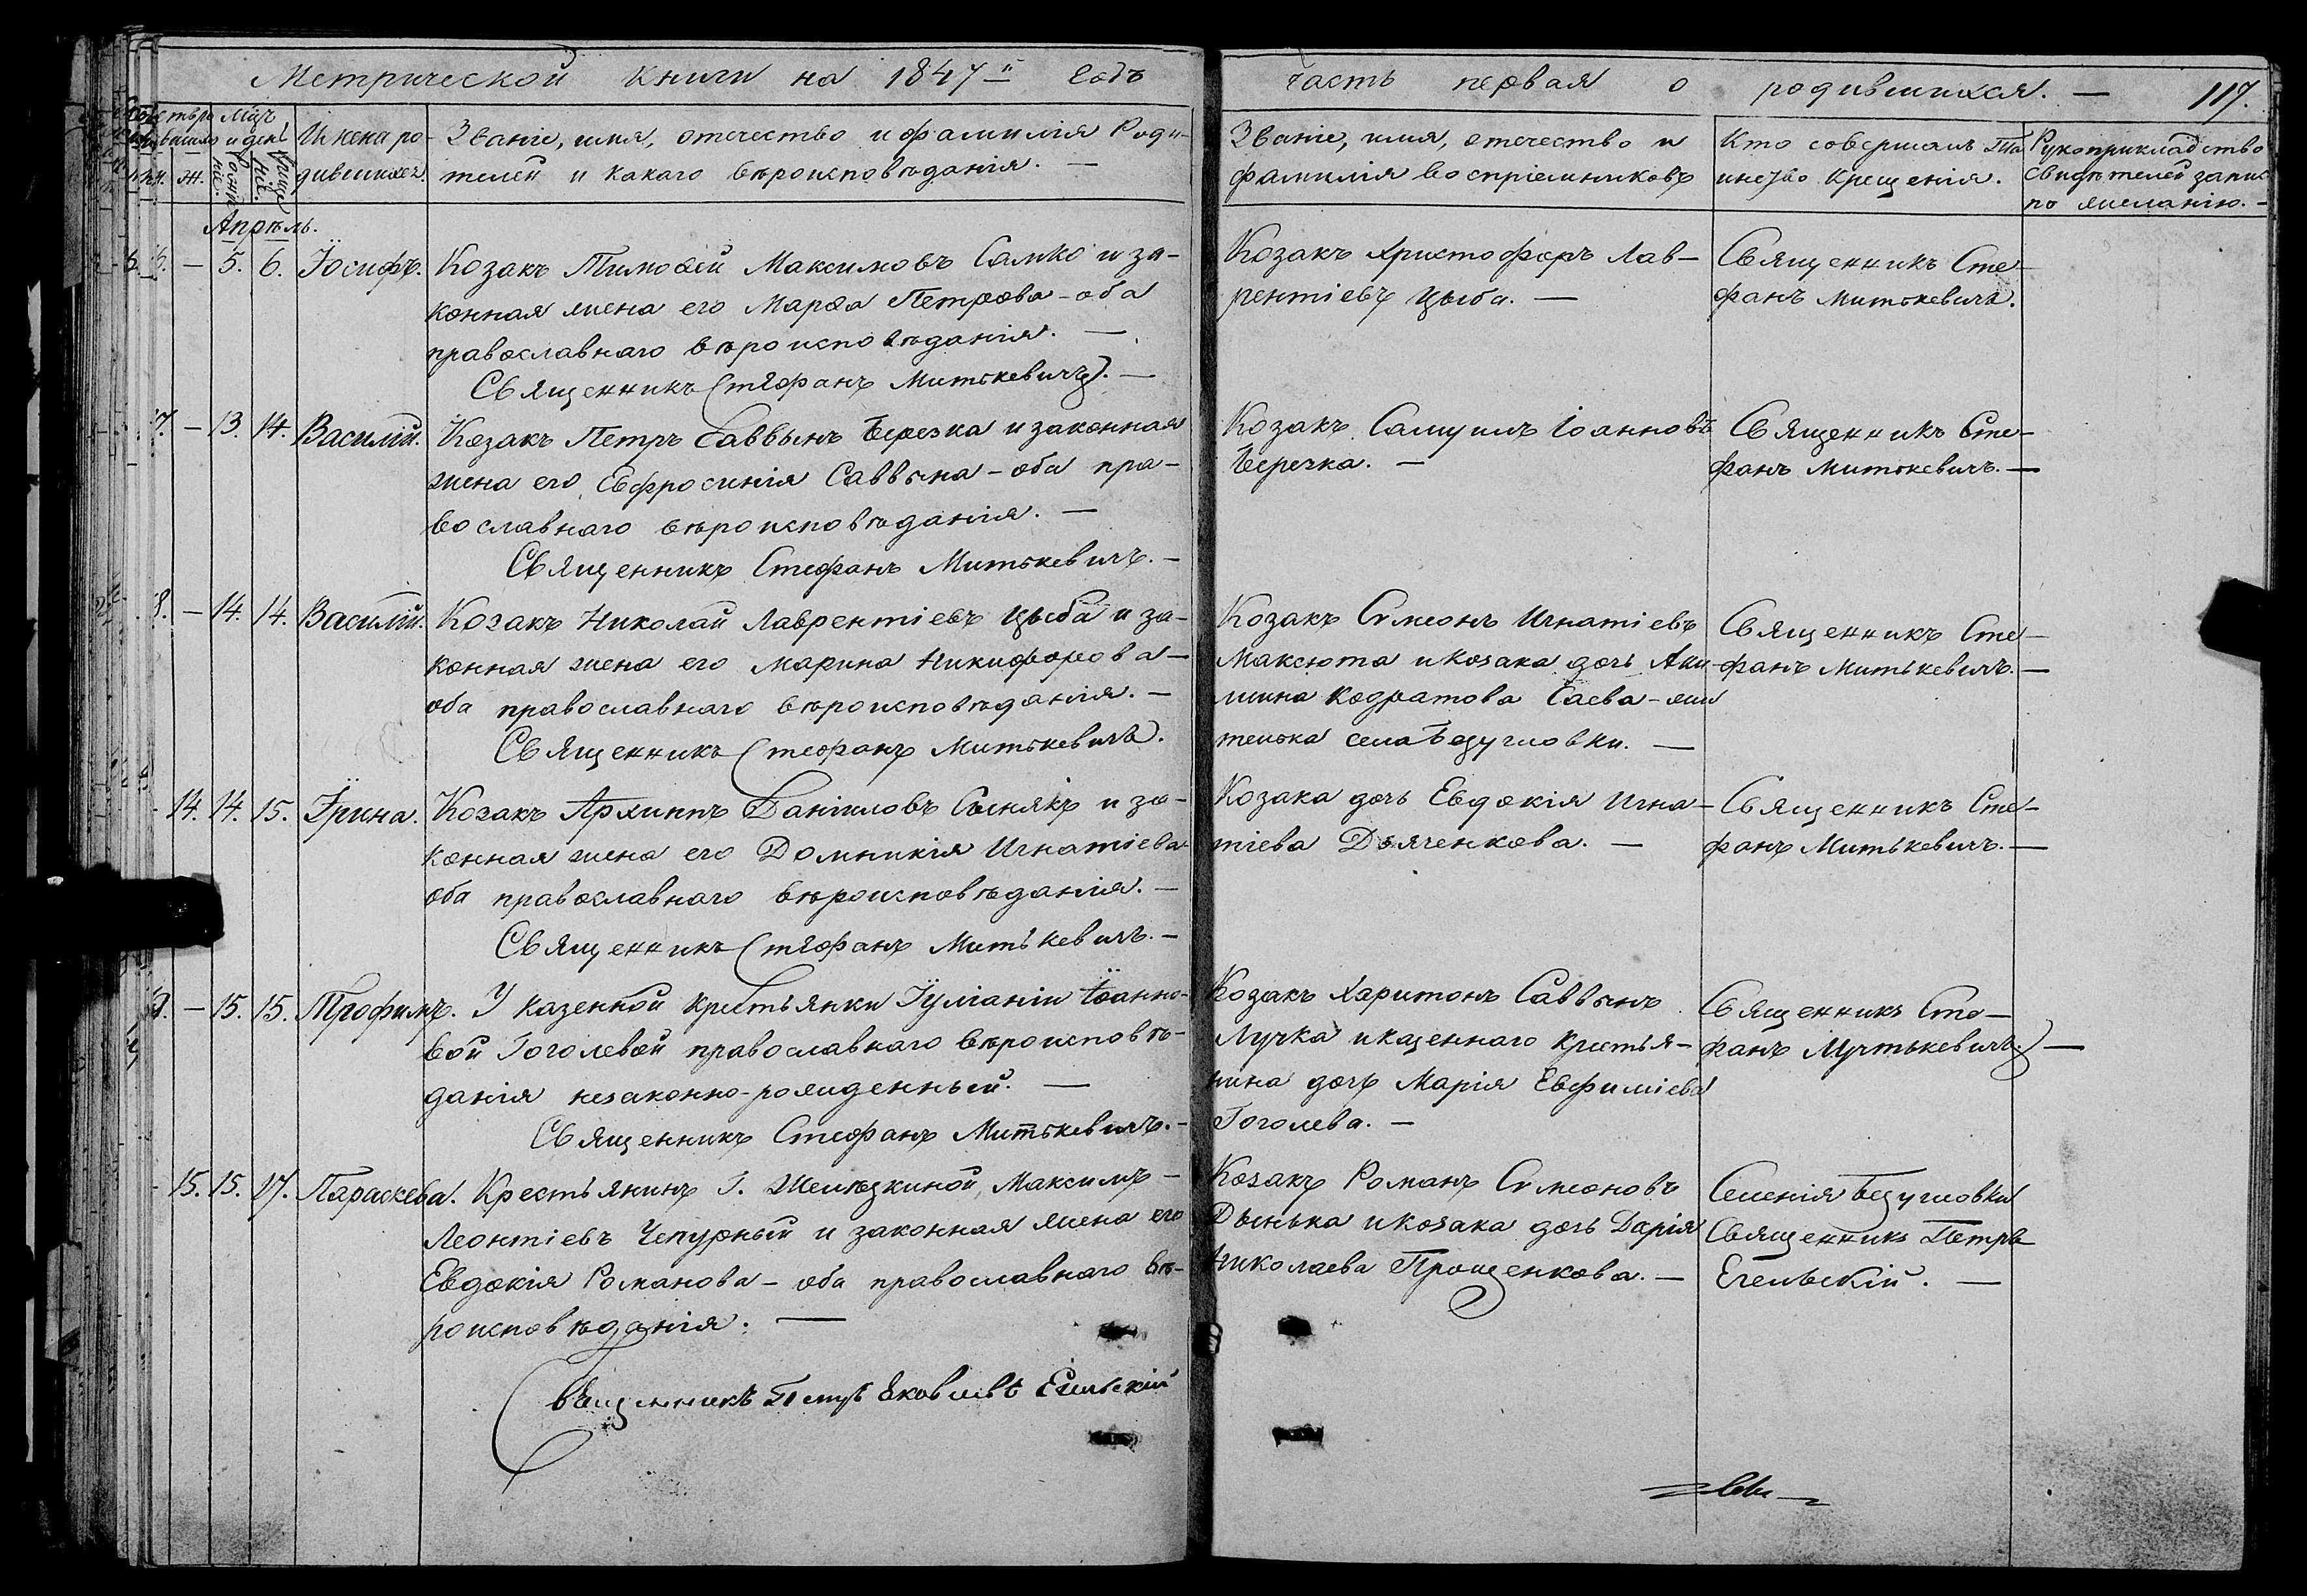 Метрической книги на 1847й годъ
часть первая о родившихся. — 117.
Имена ро-
дившихся.
Званіе, имя, отечество и фамилія Роди-
телей и какаго вѣроисповѣданія. —
Званіе, имя, отечество и
фамилія воспріемниковъ
Кто совершалъ Та
инство крещенія.
Рукоприкладство
свидѣтелей запис
по желанію. —
Апрѣль.
6. — 5. 6. Іосифъ. Козакъ Тимоѳей Максимовъ Самко и за-
конная жена его Марѳа Петрова - оба
православнаго вѣроисповѣданія. —
Священникъ Стефанъ Митькевичъ. —
Козакъ Христофоръ Лав-
рентіевъ Цыба. —
Священникъ Сте-
фанъ Митькевичъ.
7. — 13. 14. Василій. Козакъ Петръ Саввынъ Верезка и законная
жена его Евфросинія Саввына - оба пра-
вославнаго вѣроисповѣданія. —
Священникъ Стефанъ Митькевичъ. —
Козакъ Самуилъ Іоанновъ
Священникъ Сте-
фанъ Митькевичъ. —
8. — 14. 14. Василій. Козакъ Николай Лаврентіевъ Цыба и за-
конная жена его Марина Никифорова -
оба православнаго вѣроисповѣданія. —
Священникъ Стефанъ Митькевичъ.
Козакъ Сѵмеонъ Игнатіевъ
Максюта и козака дочь Аки-
лина Кодратова Саева - жи
телька села Безугловки. —
Священникъ Сте-
фанъ Митькевичъ. —
14. 14. 15. Ірина. Козакъ Архиппъ Даніиловъ Сыникъ и за-
конная жена его Домникія Игнатіева
оба православнаго вѣроисповѣданія. —
Священникъ Стефанъ Митькевичъ. —
Козака дочь Евдокія Игна-
тіева Дьяченкова. —
Священникъ Сте-
фанъ Митькевичъ. —
9. — 15. 15. Трофимъ. У казенной крестьянки Іуліаніи Іоанно-
вой Гоголевой православнаго вѣроисповѣ-
данія незаконно-рожденный. —
Священникъ Стефанъ Митькевичъ. —
Козакъ Харитонъ Саввынъ
Лучка и казеннаго крестья-
нина дочь Марія Евфиміева
Гоголева. —
Священникъ Сте-
фанъ Митькевичъ. —
15. 15. 17. Параскева. Крестьянинъ Г. Желѣзкиной, Максимъ
Леонтіевъ Чепурный и законная жена его
Евдокія Романова - оба православнаго вѣ-
роисповѣданія. —
Священникъ Петръ Яковлевъ
Козакъ Романъ Сѵмеоновъ
Дынька и козака дочь Дарія
Николаева Прощенкова. —
Селенія Безугловки
Священникъ Петръ